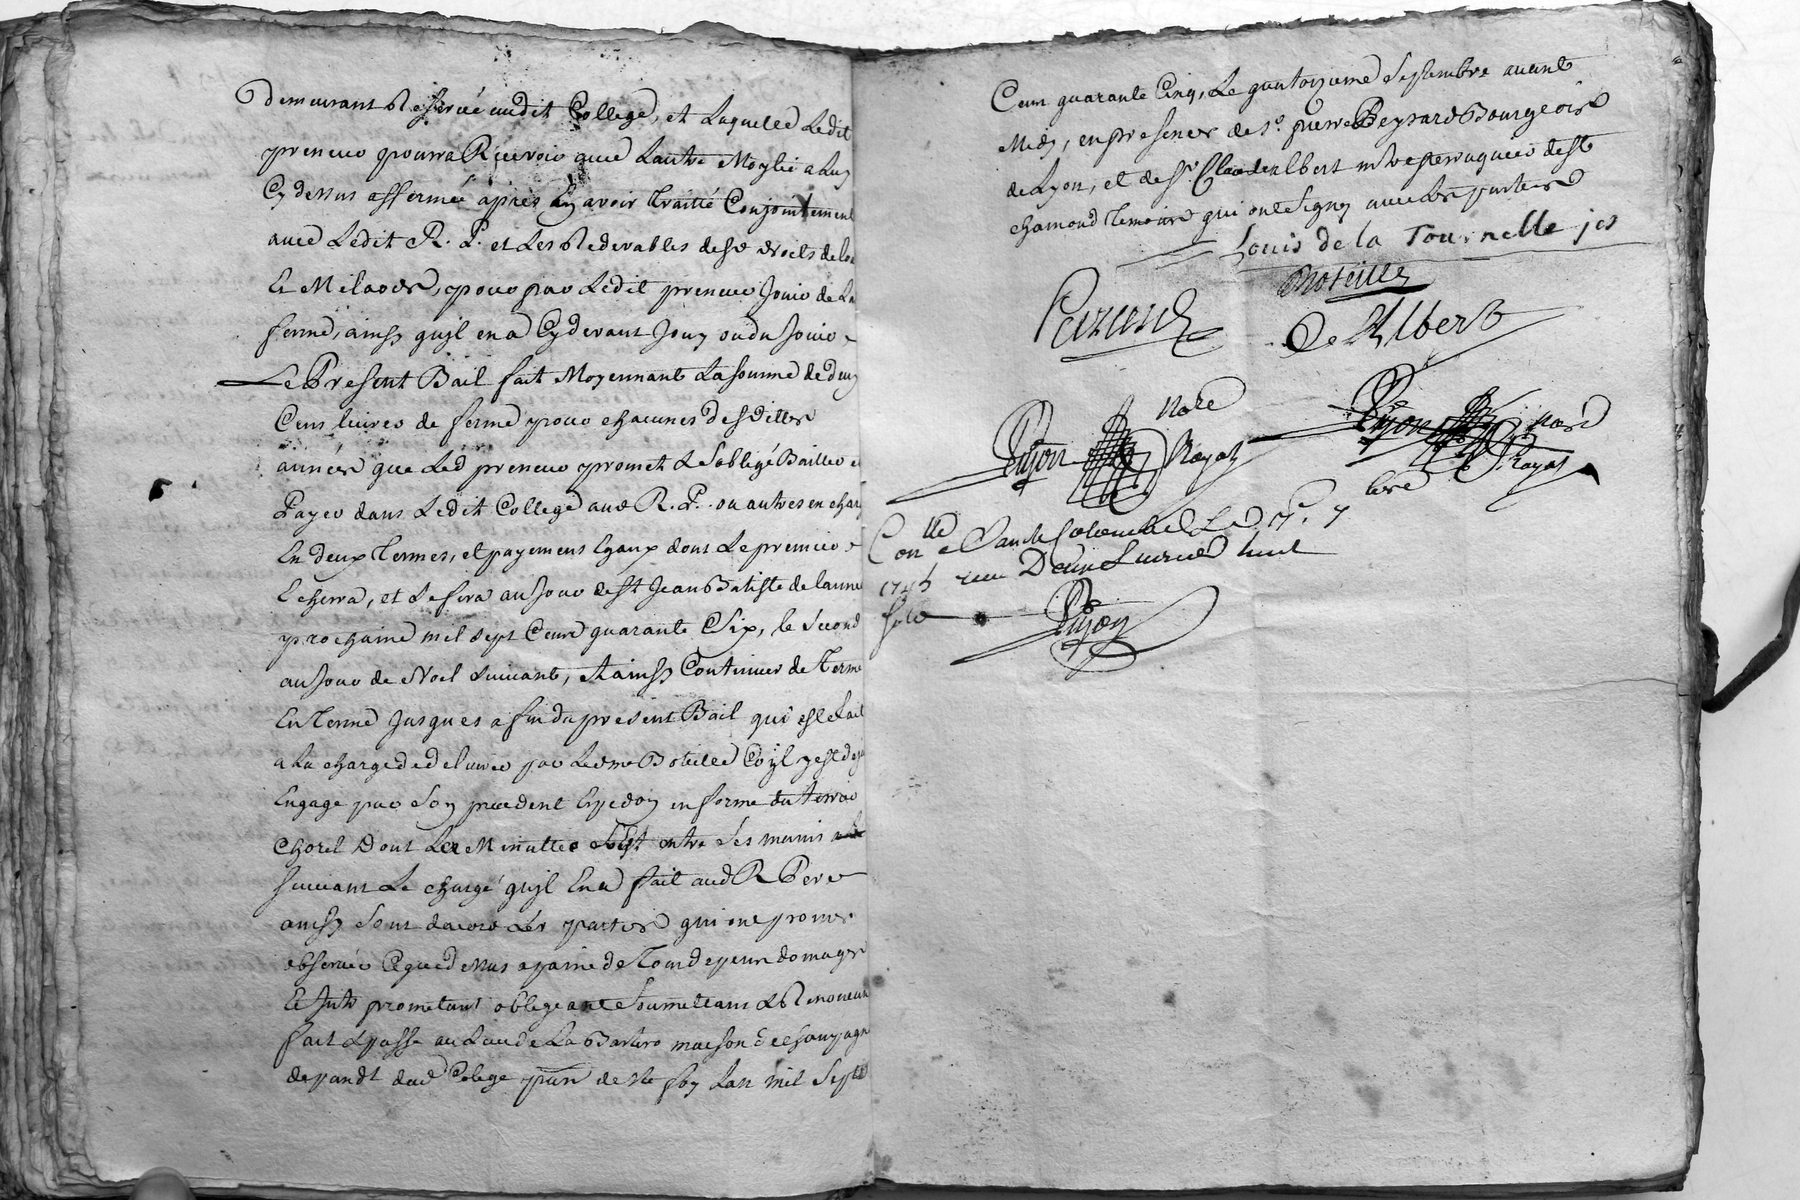 demeurant Reservée audit College, et Laquelle Ledit
preneur pourra Recevoir avec Lautre Moytié a Luy
Cy dessus affermée après En avoir Traitté Conjointement
avec Ledit R. P. et Les Redevables desd droits de
Et Milaods, pour par Ledit preneur Jouir de La
ferme, ainsy quil en a Cy devant Jouy ou du Jouir
Le Present Bail fait Moyennant La somme de deux
Cens livres de ferme pour chacunes desdittes
années que Led preneur promet Et Soblige Bailler et
Payer dans Ledit College aud R. P. ou autres en char
En deux Termes, et payemens Egaux dont Le premier
Echerra, et Se fera au Jour de St Jean Batiste de lannée
prochaine mil sept Cens quarante Six, le Second
au Jour de Noel Suivant, Et ainsy Continuer de Terme
En Terme Jusques a fin du present Bail qui est fait
a La charge par Led me Boteille
Engagé par Son precedent en forme du terrier
Chorel Dont Les Minuttes Sont entre Ses mains
Suivant Le chargé quil En a fait aud R Pere
ainsy Sont dacord Les parties qui ont promis
observer Ce que dessus a peine de Tous depens domages
Et Ints prometant obligeant Soumettant Et Renonceant
fait Et passé au Lieu de La Barliro maison de Campagne
depandt dud Colege psse de Ste foy Lan mil Sept
Cens quarante Cinq, Le quatorzieme Septembre avant
Midy, en presence de Sr. pierre Peyrard Bourgeois
de Lyon, et de Sr Claude Albert mtre perruquier de St
chamond Temoins qui ont Signez avec Les parties
Louis de la Tournelle jes
Boteille
Peirard
De Albert
Pujon
Notre
Royal
Pujon
nore
Royal
Conlle a Sainte Colombe Le 17e. 7bre
1745 reçu Deux Livres huit
sols
Pujon